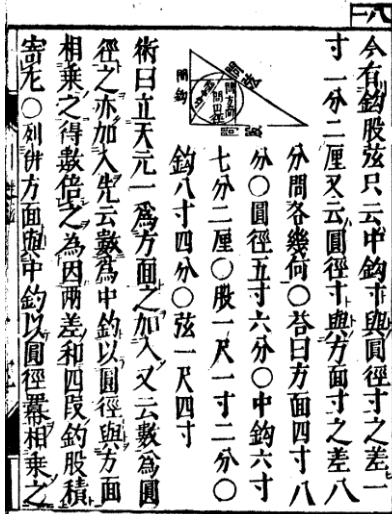 今有鈎股弦只云中鈎寸與圓徑寸之差一
寸一分二厘又云圓徑寸與方面寸之差八
分問各幾何○荅曰方面四寸八
分○圓徑五寸六分○中鈎六寸
七分二厘○股一尺一寸二分○
鈎八寸四分○弦一尺四寸
問弦
問方面
問圓徑
問鈎
問股
術曰立天元一爲方面之加入又云數爲圓
徑之亦加入先云數爲中鈎以圓徑與方面
相乗之得數倍之為因兩差和四段鈎股積
寄左○列併方面與中鈎以圓徑冪相乗之